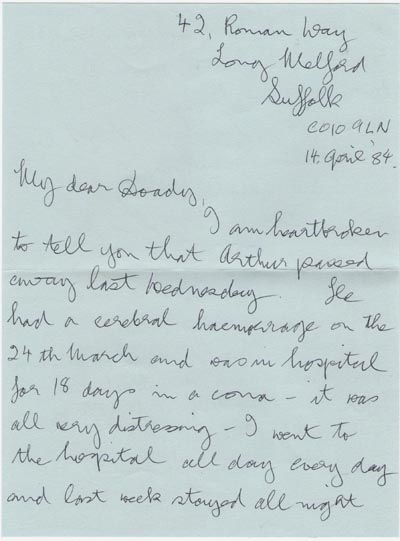 42, Roman Way
Long Melford
Suffolk
CO10 9LN
14. April '84.
My dear Doady,
I am heartbroken
to tell you that Arthur passed
away last Wednesday. He
had a cerebral haemorrage on the
24th March and was in hospital
for 18 days in a coma - it was
all very distressing - I went to
the hospital all day every day
and last week stayed all night